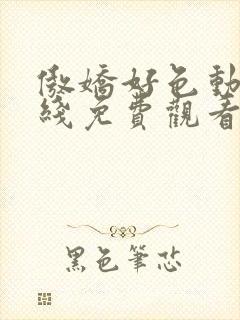 傲嬌好色動
綫免費觀看
黑色筆芯